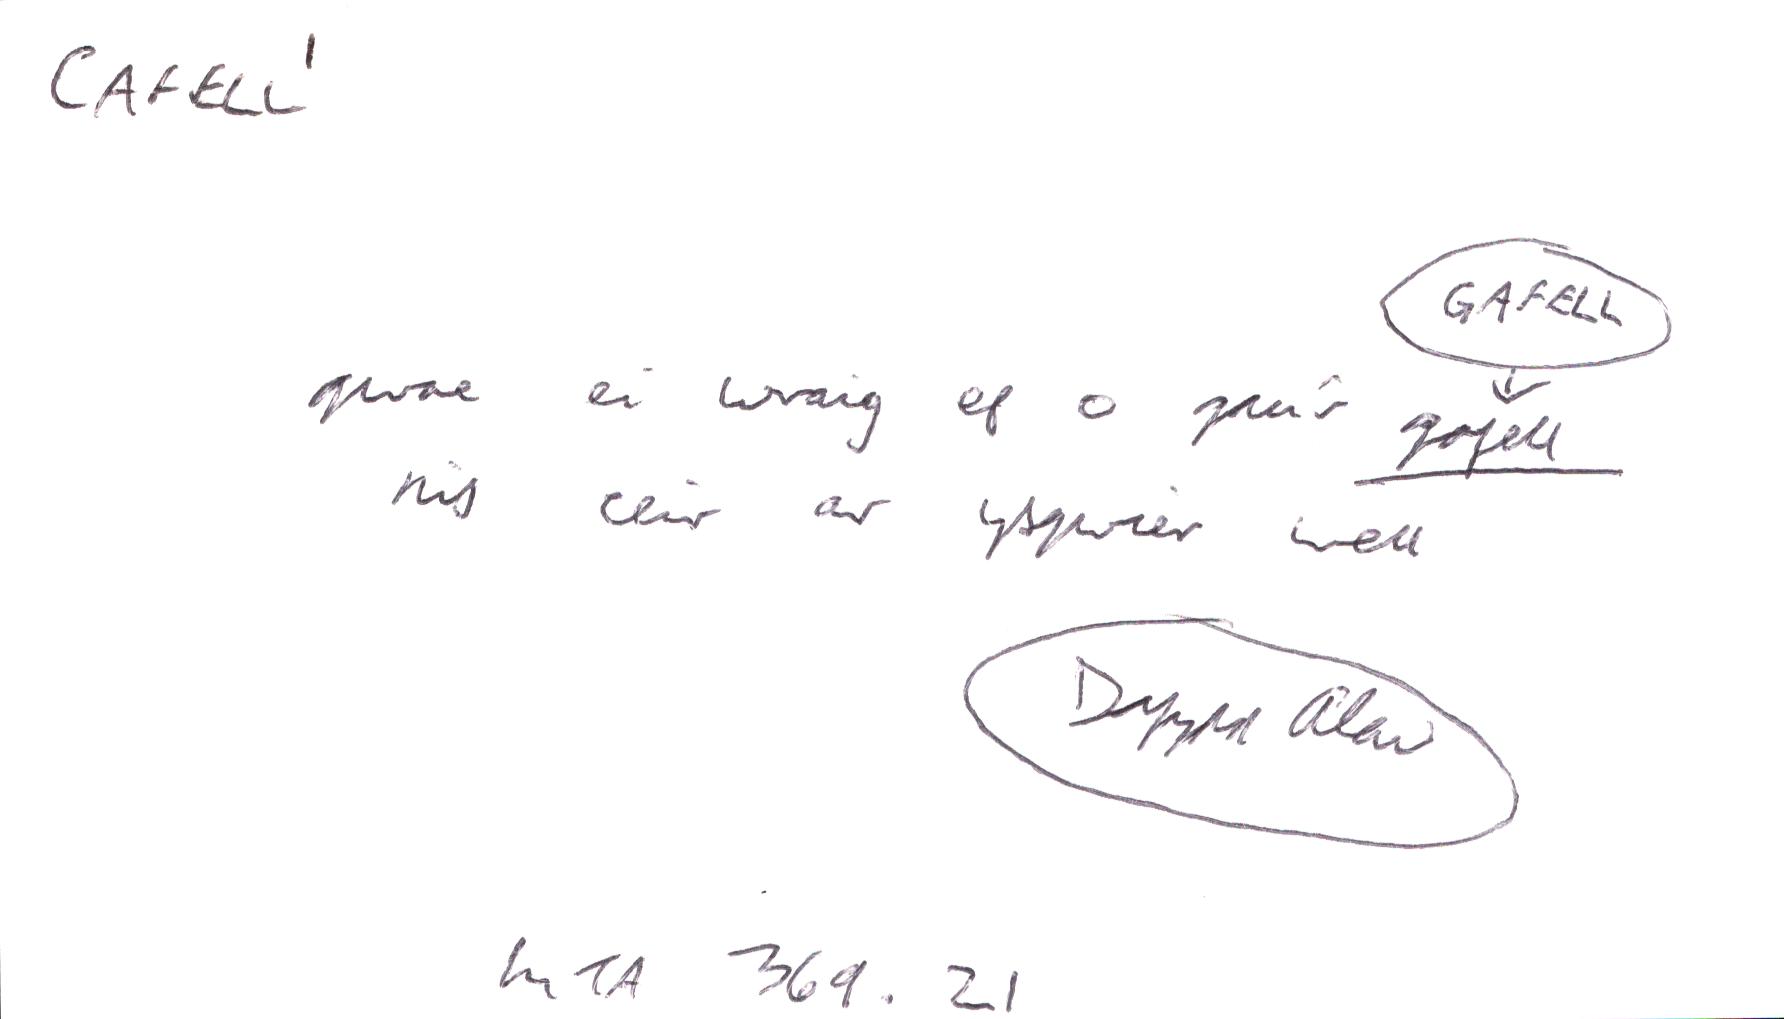 CAFELL¹
GAFELL
gwae ei wraig ef o gur gafell
nis ceir ar ysgwier well
Dafydd Alaw
in TA 369. 21